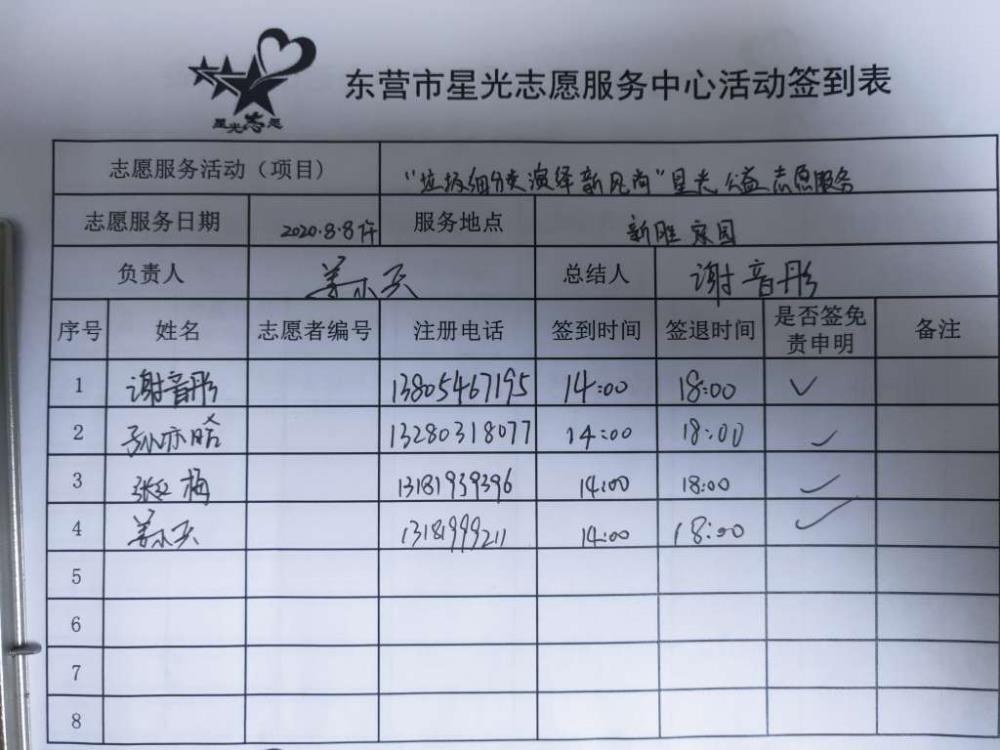 星光志愿
东营市星光志愿服务中心活动签到表
志愿服务活动（项目） “垃圾细分类演绎新风尚”星光公益志愿服务
志愿服务日期 2020.8.8下午 服务地点 新胜家园
负责人 姜小天 总结人 谢音彤
序号 姓名 志愿者编号 注册电话 签到时间 签退时间 是否签免责申明 备注
1 谢音彤 13805467195 14:00 18:00 ✓
2 孙亦晗 13280318077 14:00 18:00 ✓
3 张红梅 13181939396 14:00 18:00 ✓
4 姜小天 13181999211 14:00 18:00 ✓
5
6
7
8